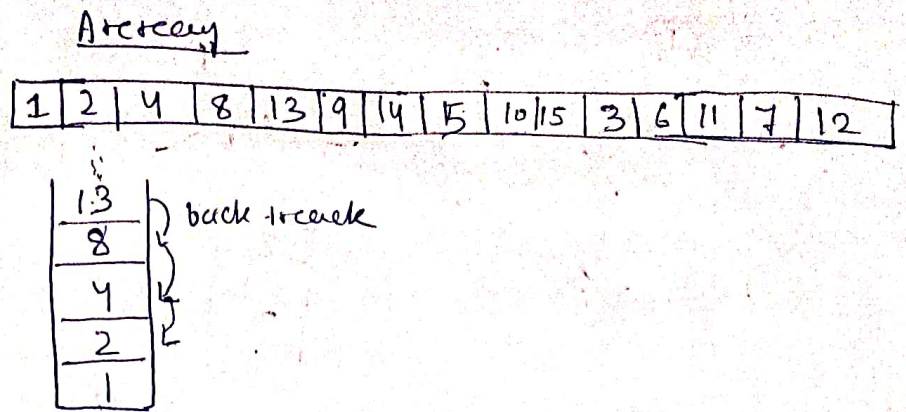 Array
1 2 4 8 13 9 14 5 10 15 3 6 11 7 12
13 back track
8
4
2
1